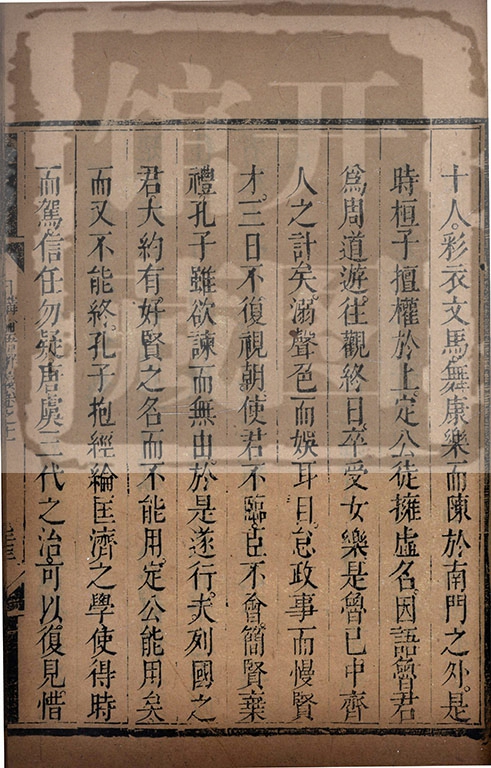 十人。彩衣文馬。舞康樂而陳於南門之外。是
時桓子擅權於上。定公徒擁虛名。因語魯君
爲周道遊。往觀終日。卒受女樂。是魯已中齊
人之計矣。溺聲色而娛耳目。怠政事而慢賢
才。三日不復視朝。使君不臨。臣不會。簡賢棄
禮。孔子雖欲諫而無由。於是遂行。夫列國之
君。大約有好賢之名。而不能用。定公能用矣。
而又不能終。孔子抱經綸匡濟之學。使得時
而駕。信任勿疑。唐虞三代之治。可以復見。惜